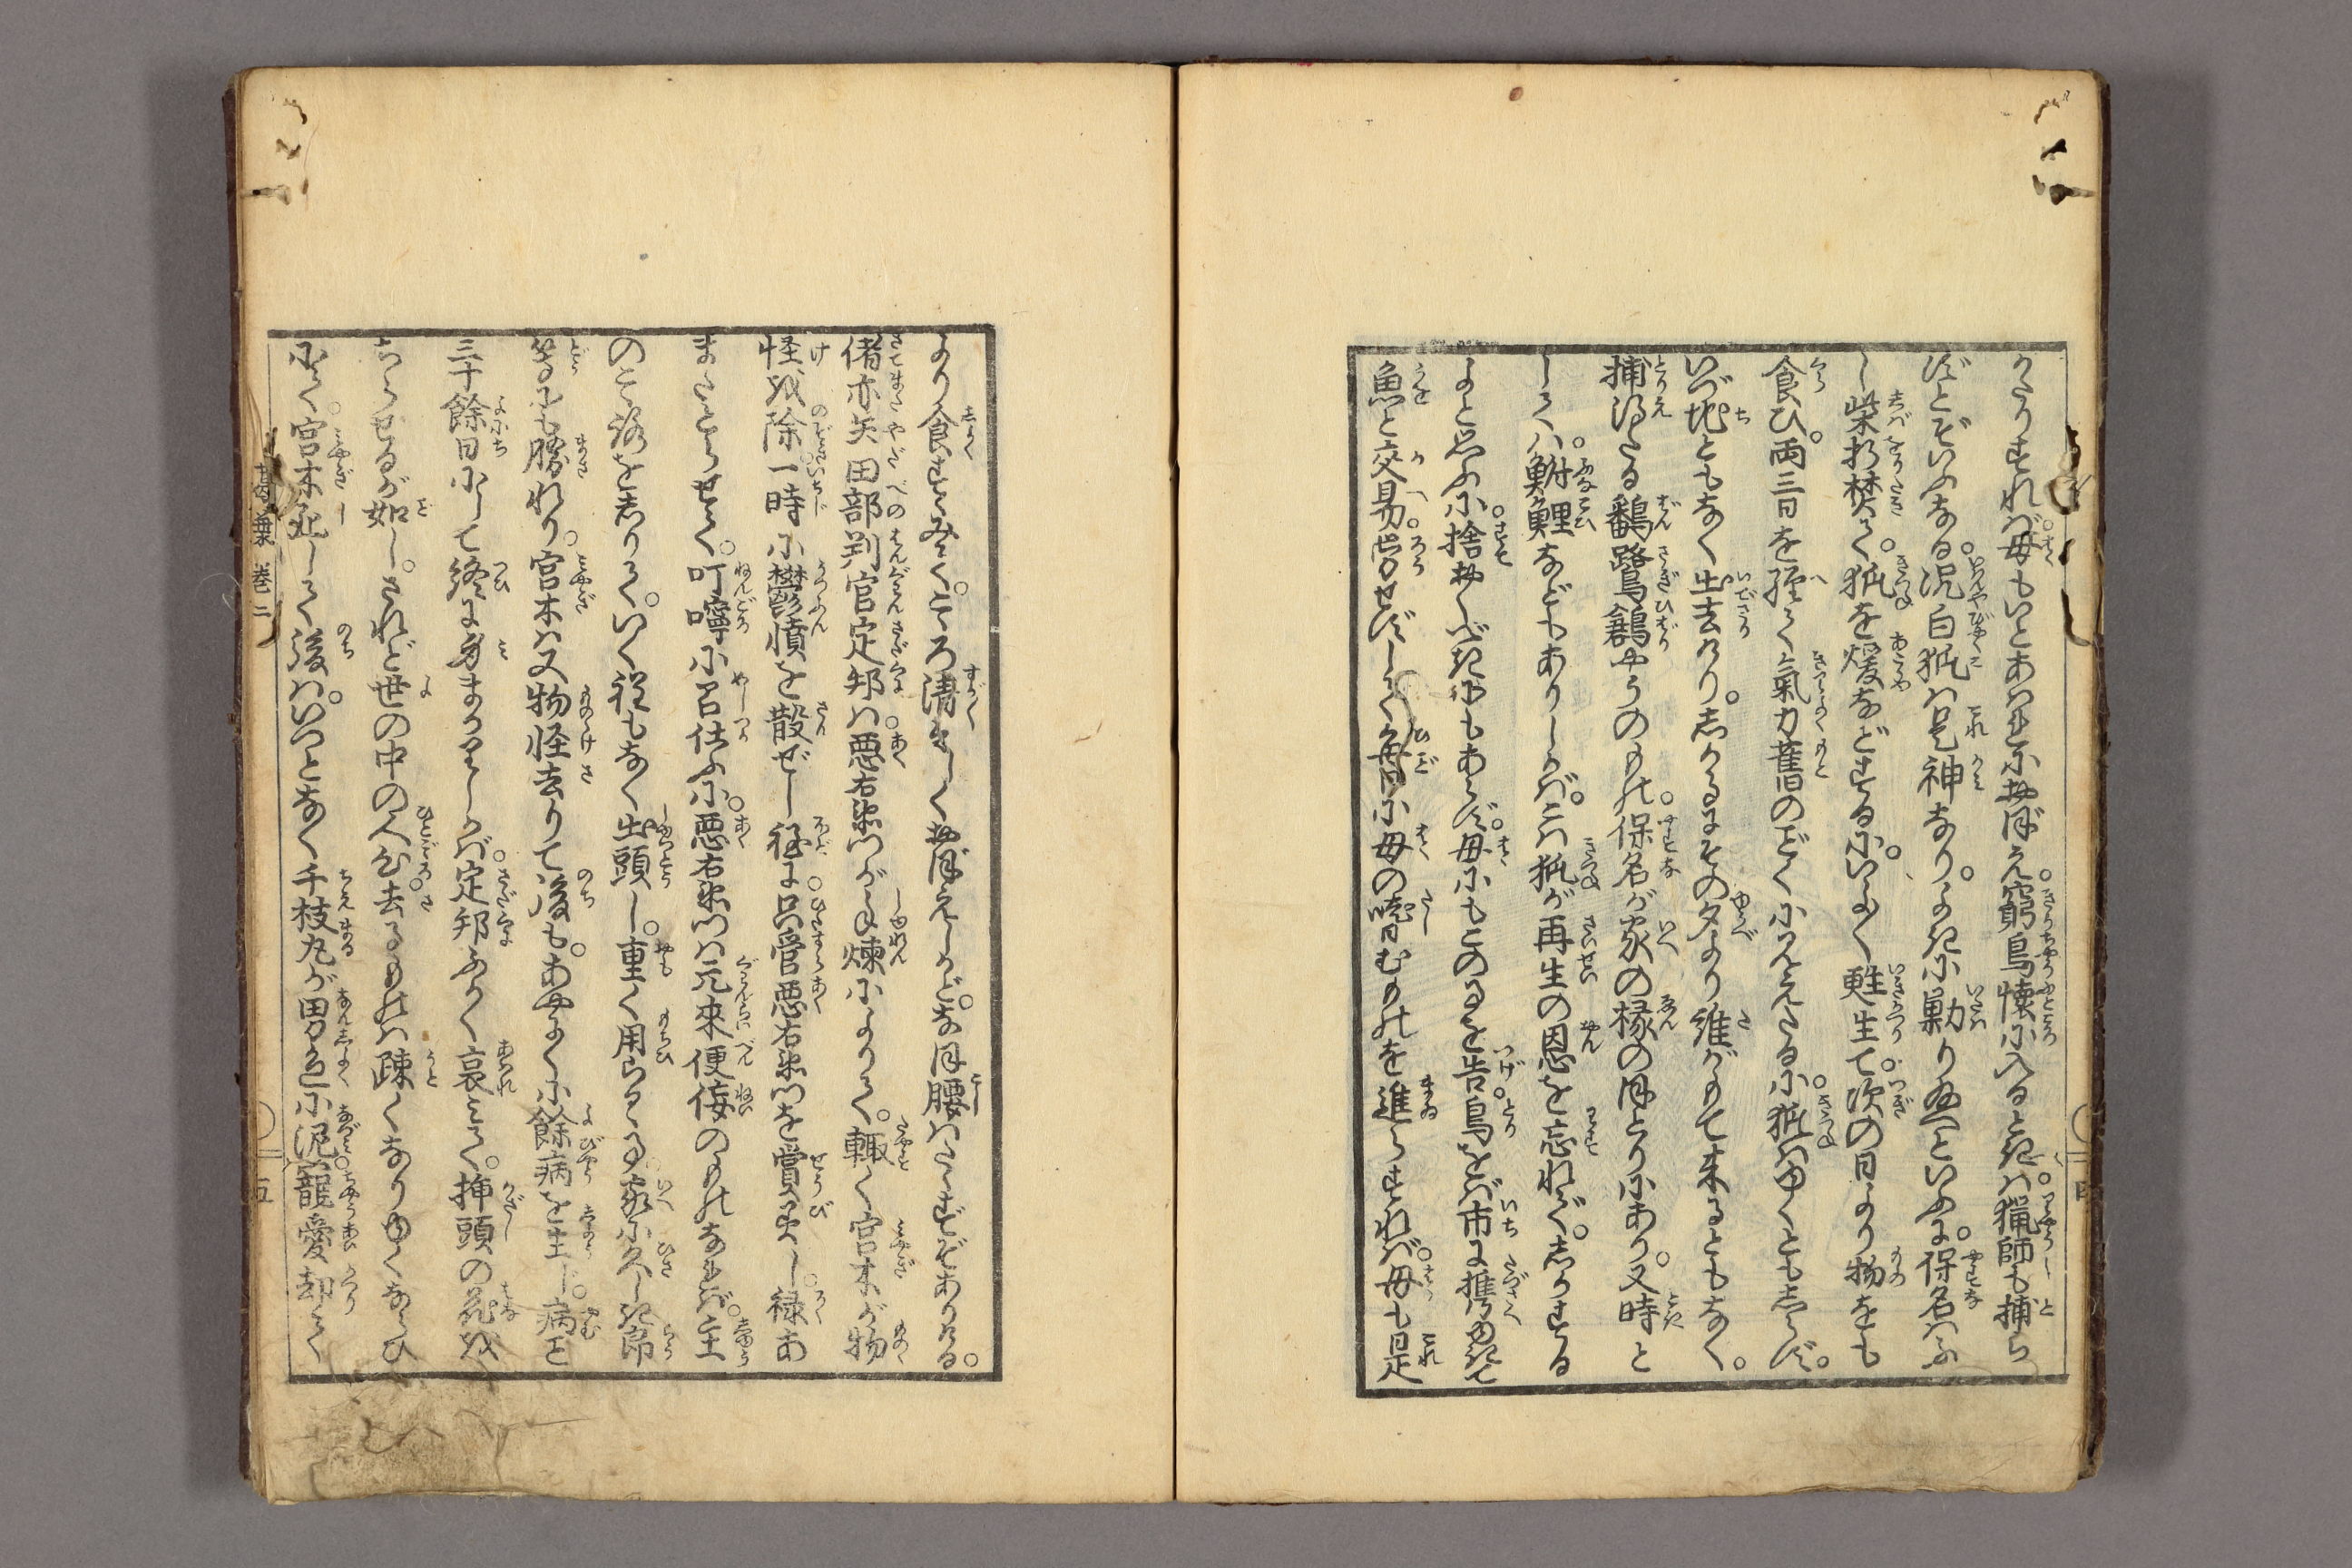 かたりきこゆれば。母もいとあはれにおぼえ。窮鳥懐に入るときは。猟師も捕ら
ずとぞいふなる。况白狐は是神なり。よきに勦り給へといふに。保名はふ
し柴折焚て。狐を煖などするに。いよよく甦生て。次の日より物をも
食ひ。両三日を経て。氣力舊のごとくに見えたるに。狐はゆくともしらず。
いづ地ともなく出去けり。しかるにその夕より誰がもて来るともなく。
捕得たる鷭鷺鶬やうのもの。保名が家の椽のほとりにあり。又時と
しては。鮒鯉などもありしかば。こは狐が再生の恩を忘れで。しかするる
よと思ふに。捨おくべきにもあらず。母にもこのよしを告。鳥をば市に携ゆきて
魚と交易。労せずして毎日に母の嗜むものを進らすれば。母も是
より食すゝみて。こゝろ清々しくおぼえしかど。なほ腰はたゝずぞありける。
偖亦矢田部判官定邦は。悪右衛門が手煉によりて。輙く宮木が物
怪を除。一時に鬱憤を散ぜし程に。只管悪右衛門を賞美し。禄あ
またとらせて。叮嚀に召仕ふに。悪右衛門は元来便侫のものなれば。主
のこゝろをしりて。いく程もなく出頭し。重く用らるゝ事。家に久しき郎
等にも勝れり。宮木は又物怪去りて後も。あやにくに餘病を生じ。病こと
三十餘日にして終に身まかりしかば。定邦ふかく哀みて。挿頭の花を
ちらせるが如し。されど世の中の人心。去るものは疎くなりゆくならひ
にて。宮木死して後は。いつとなく千枝丸が男色に泥。寵愛却て
葛葉 巻二
五